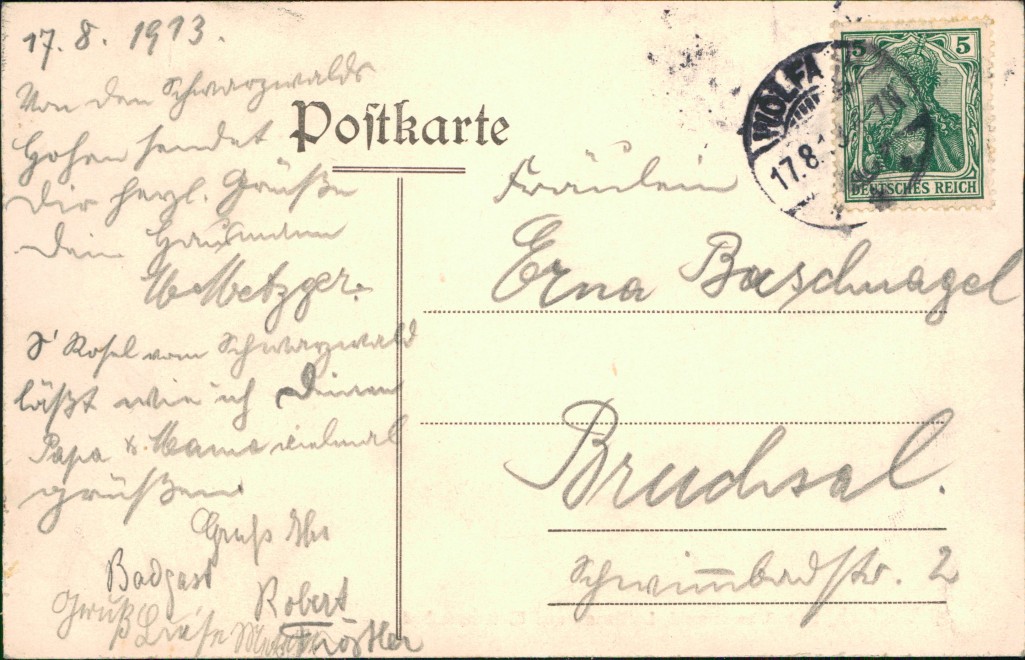 17. 8. 1913.
Von den Schwarzwalds
Höhen sendet
Dir herzl. Grüße
Dein Hausmama
Metzger.
S' Rosel vom Schwarzwald
läßt wie ich Deinen
Papa u. Mama vielmal
grüßen
Gruß Ihr
Badgast
Robert
Gruß Liese
Tröstler
Postkarte
WOLFA
17.8.
5 5
DEUTSCHES REICH
Fräulein
Erna Baschnagel
Bruchsal.
Schwimmbadstr. 2